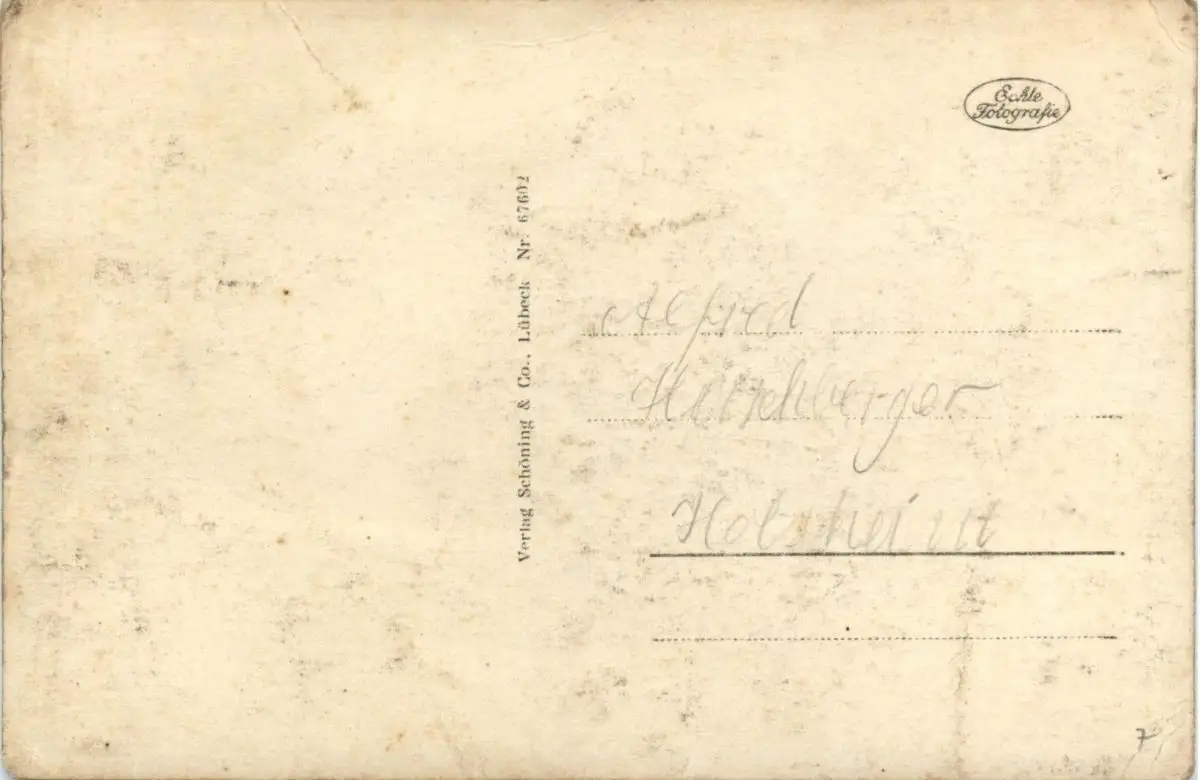 Echte
Fotografie
Verlag Schöning & Co., Lübeck Nr. 67602
Alfred
Hirschberger
7